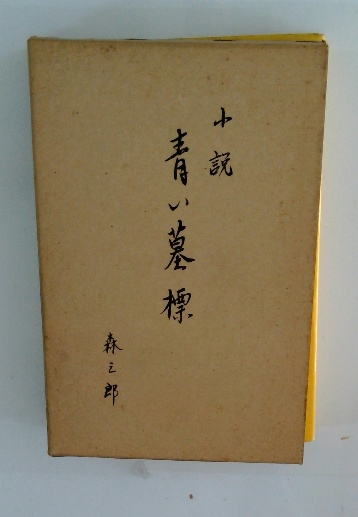 小説
青い墓標
森三郎